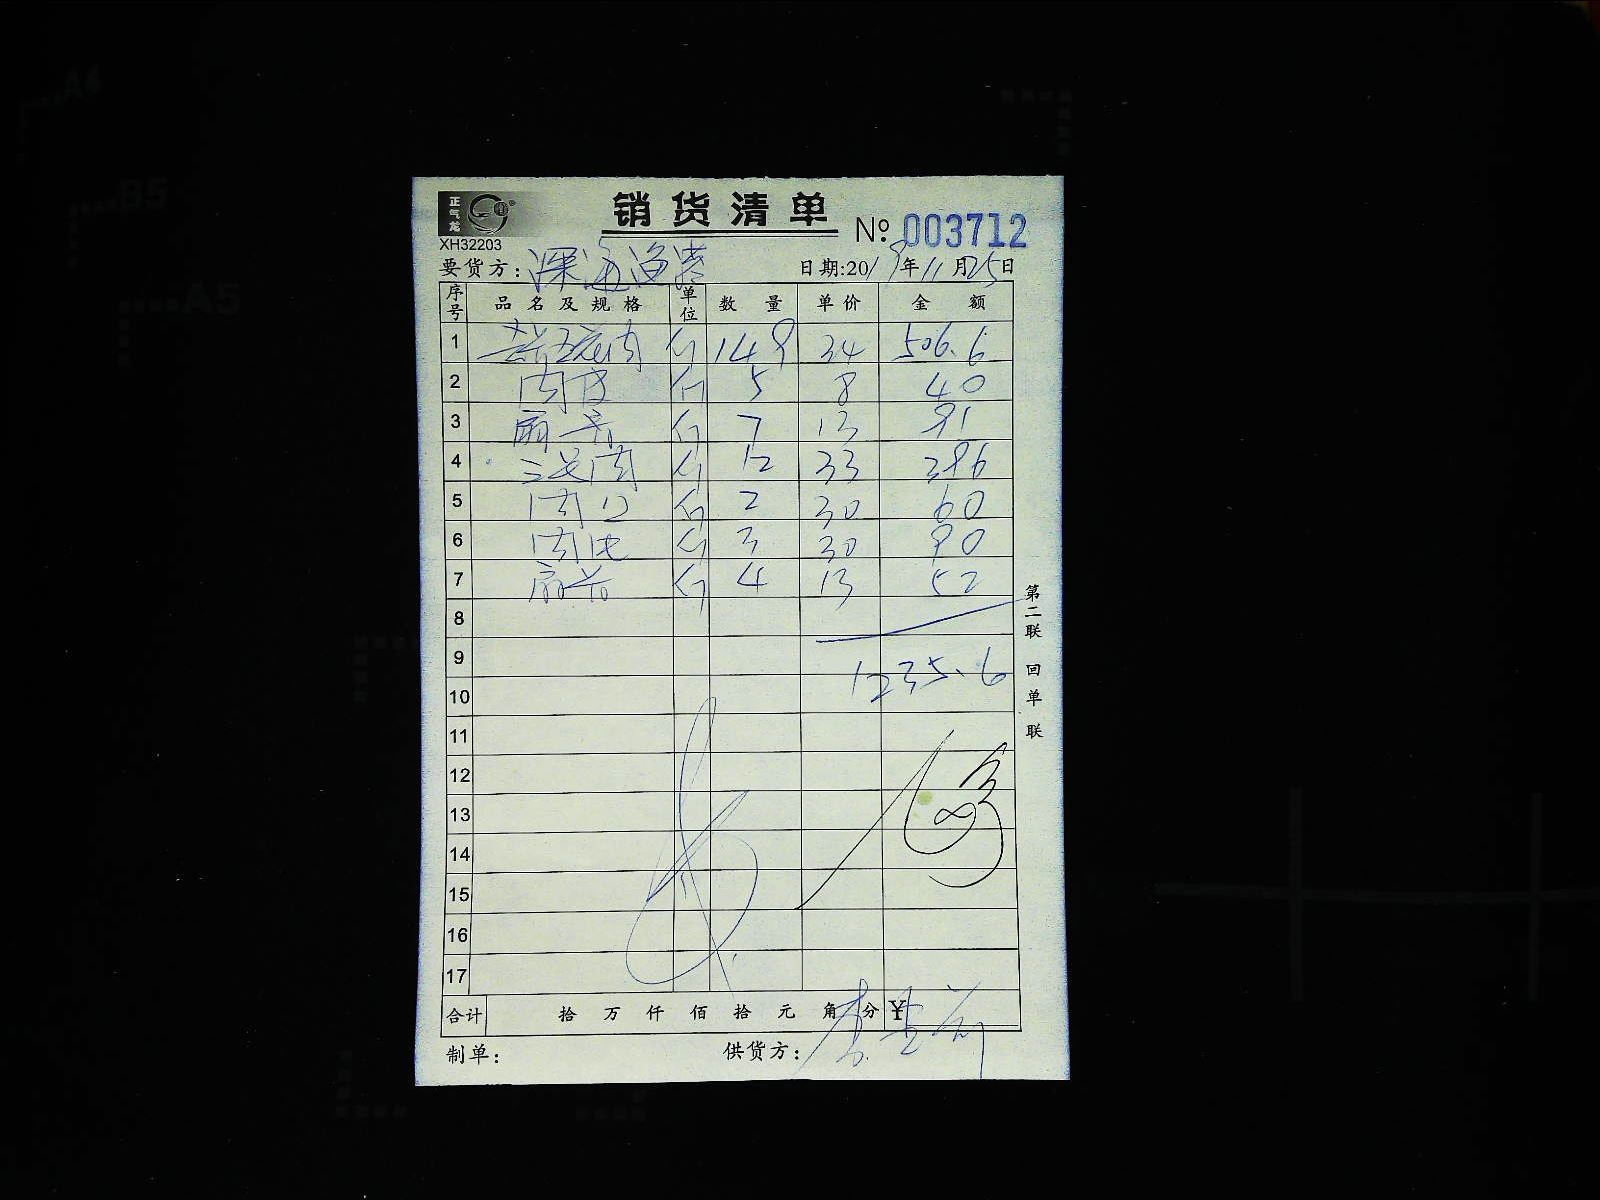 正气龙
销货清单
XH32203
No. 003712
要货方：深海渔港 日期:2019年11月25日
序号 品名及规格 单位 数量 单价 金额
1 斤 149 34 506.6
2 肉皮 斤 5 8 40
3 斤 7 13 91
4 肉 斤 12 33 396
5 肉 斤 2 30 60
6 肉 斤 3 30 90
7 斤 4 13 52
8
9
1235.6
10
11
12
13
14
15
16
17
合计 拾万仟佰拾元角分 ¥
制单： 供货方：
第二联 回单联
A4
B5
A5